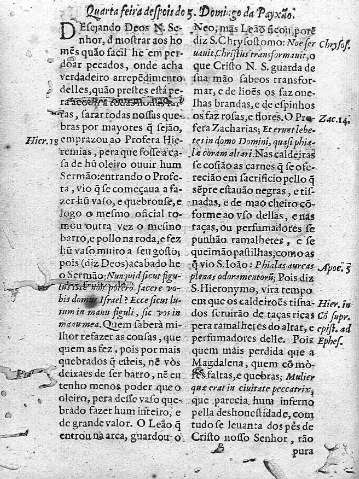 Quarta feira despois do 5. Domingo da Payxão.
DEsejando Deos N. Se-
nhor, d mostrar aos ho-
mẽs quão facil lhe em per-
doar pecados, onde acha
verdadeiro arrepẽdimento
delles, quão prestes está pe-
ra
tas, sarar todas nossas que-
bras por mayores q̃ sejão,
emprazou ao Profeta Hie-
remias, pera que fosse a ca-
sa de hũ oleiro ouuir hum
Sermão: entrando o Profe-
ta, vio q̃ se começaua a fa-
zer hũ vaso, e quebrouse, e
logo o mesmo oficial to-
mou outra vez o mesmo
barro, e pollo na roda, e fez
hũ vaso muito a seu gosto,
pois (diz Deos) acabado he
o Sermão: Nunquid sicut figu-
lus non potero facere vo-
bis domus Israel? Ecce sicut lu-
tum in manu figuli, sic vos in
manu mea. Quem saberá mi-
lhor refazer as cousas, que
quem as fez, pois por mais
quebrados q̃ esteis, nẽ vos
deixaes de ser barro, nẽ eu
tenho menos poder que o
oleiro, pera desse vaso que-
brado fazer hum inteiro, e
de grande valor. O Leão q̃
entrou na arca, guardou o
Hier. 18
Neo, mas Leão ficou, porẽ
diz S. Chrysostomo: Noe ser
uauit, Christus transformauit, o
que Cristo N. S. guarda de
sua mão sabeos transfor-
mar, e de liões os faz oue-
lhas brandas, e de espinhos
os faz rosas, e flores. O Pro
feta Zacharias; Et erunt lebe-
tes in domo Domini, quasi phia-
læ coram altari. Nas caldeiras
se cosião as carnes q̃ se ofe-
recião em sacrificio pello q̃
sẽpre estauão negras, e tis-
nadas, e de mao cheiro cõ-
forme ao vso dellas, e nas
taças, ou perfumadores se
punhão ramalhetes, e se
queimão pastilhas, como as
q̃ vio S. Ioão: Phialas aureas
plenas odoramentorũ; Pois diz
S. Hieronymo, vira tempo
em que os caldeirões tisna-
dos seruirão de taças ricas
pera ramalhetes do altar, e
perfumadores delle. Pois
quem mais perdida que a
Magdalena, quem cõ mò-
res faltas, e quebras; Mulier
quæ erat in ciuitate peccatrix,
que parecia hum inferno
pella deshonestidade, com
tudo se leuanta dos pés de
Cristo nosso Senhor, tão
pura
Chrysos.
Zac. 14.
Apoc. 5
Hier. in
Cõ supr.
epist. ad
Ephes.